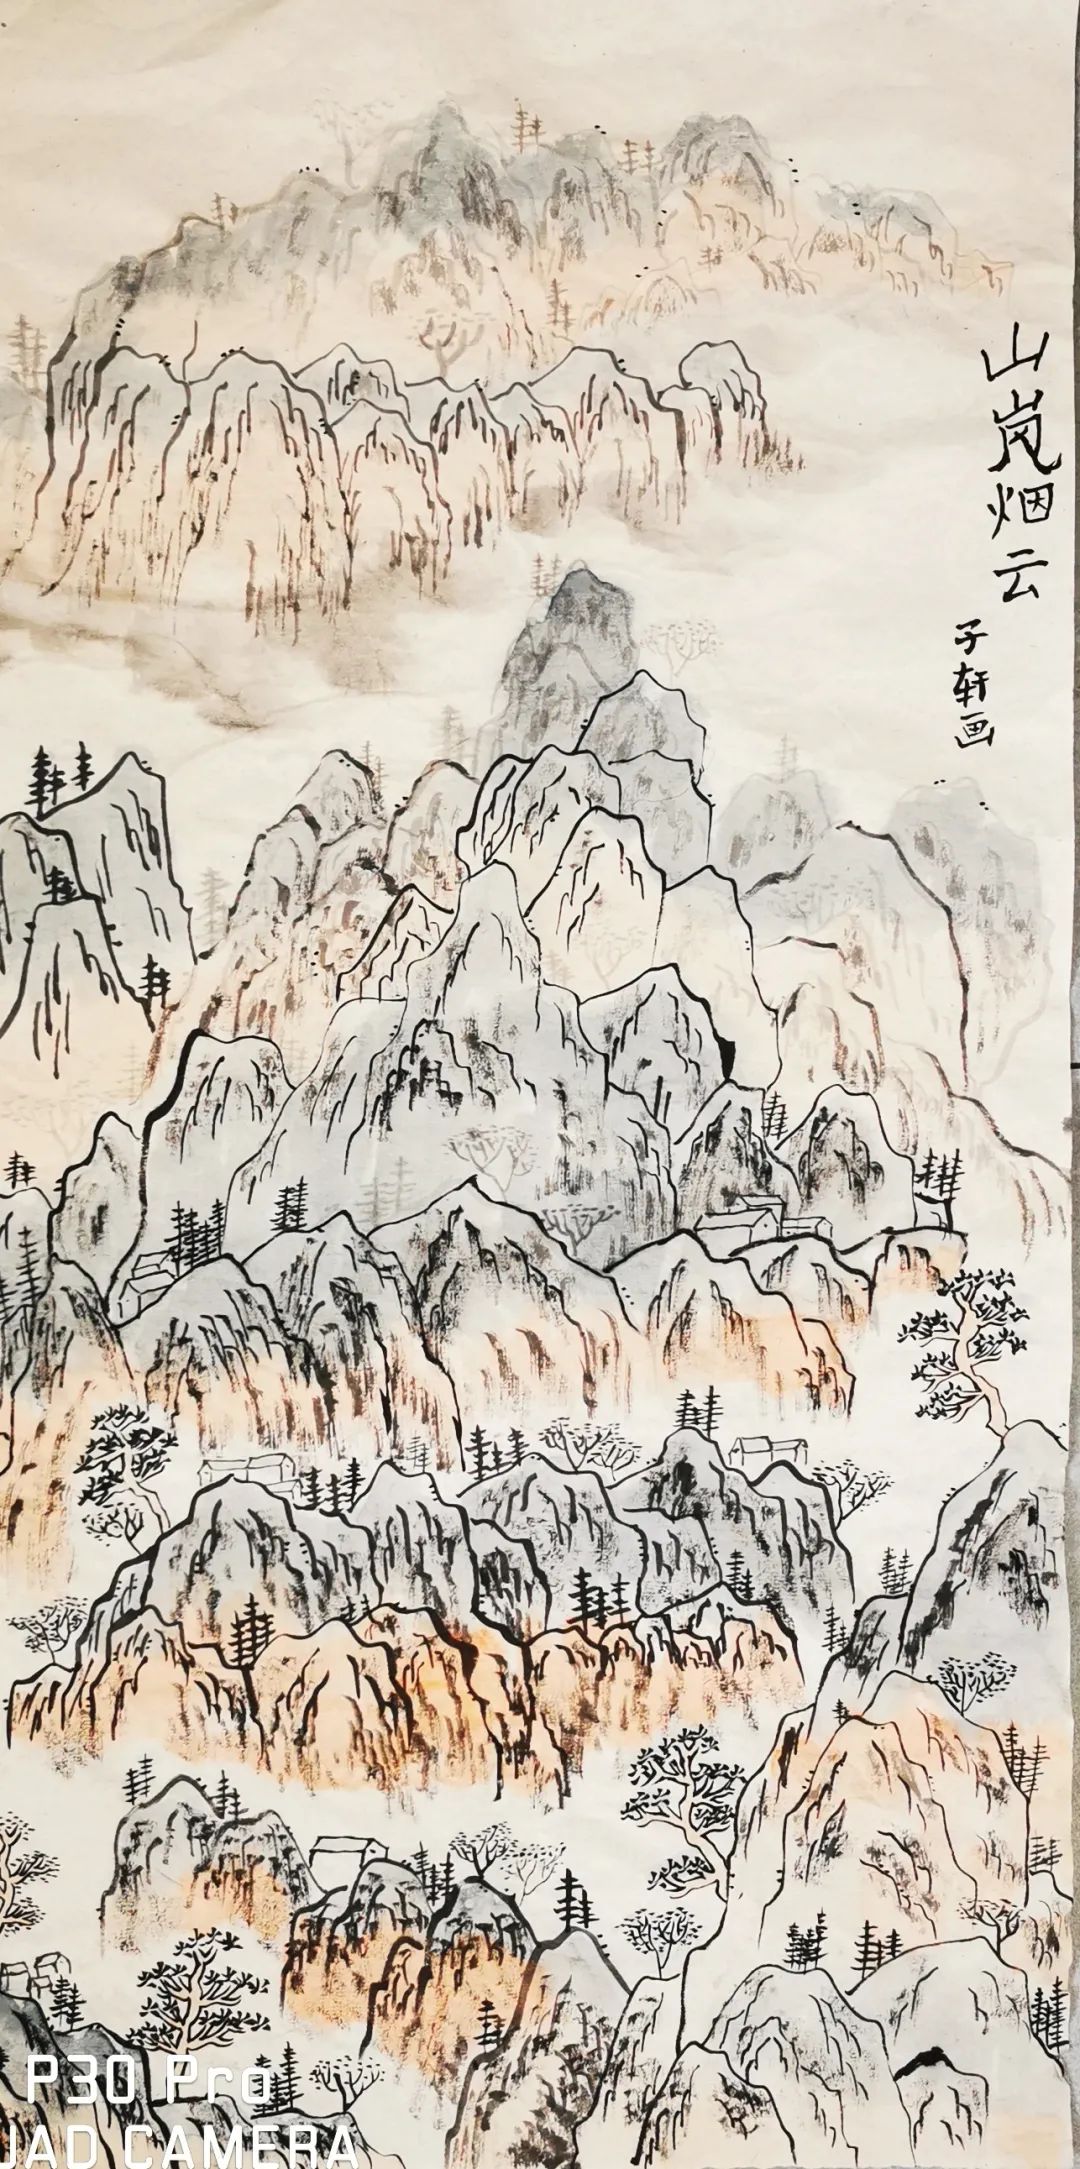 山岚烟云
子轩画
P30 Pro
UAD CAMERA